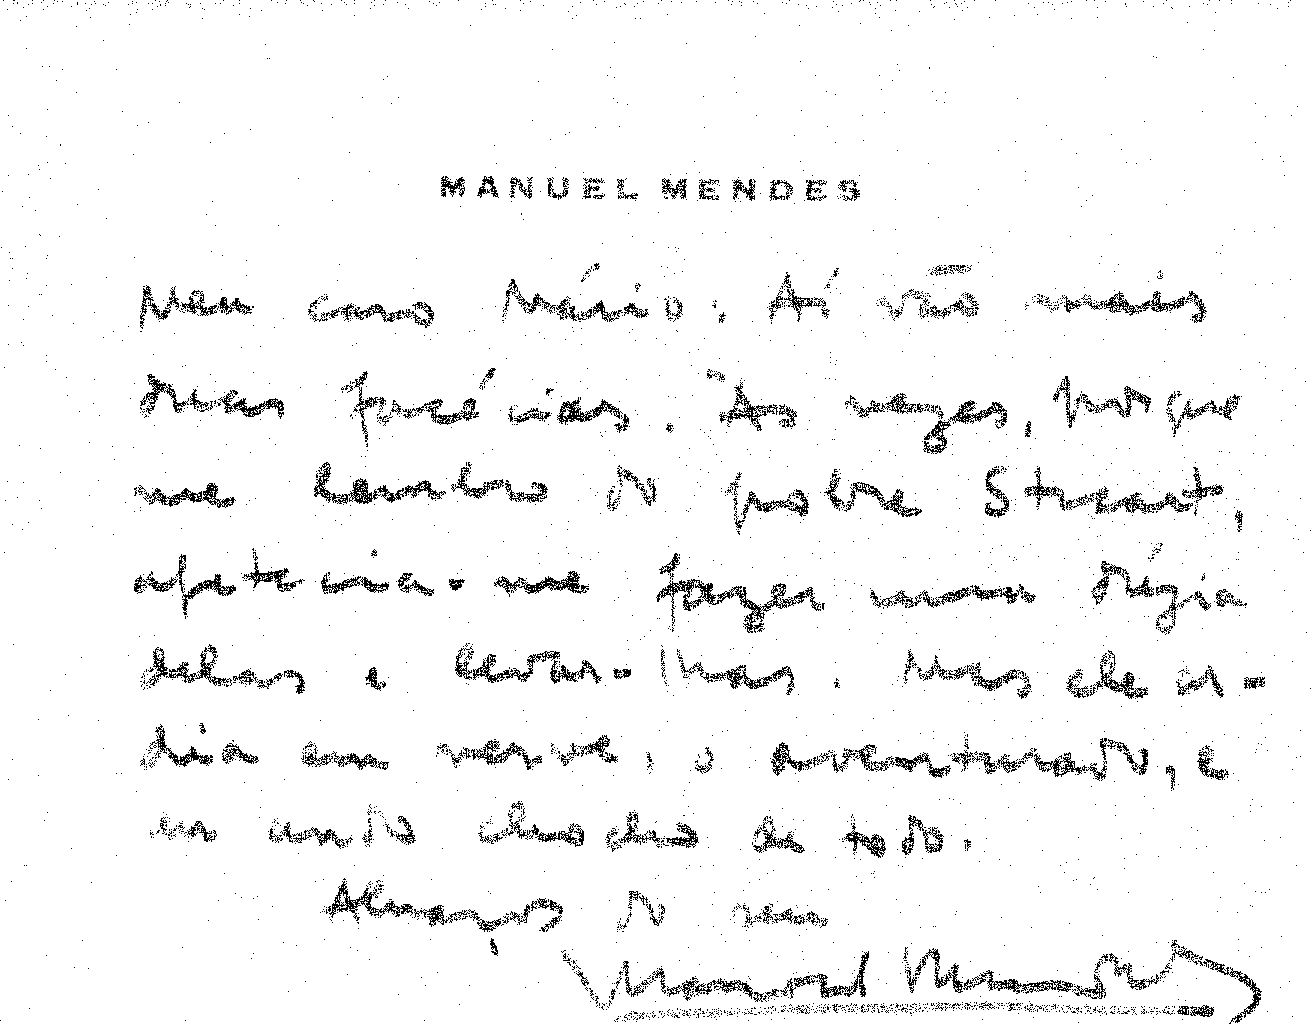 MANUEL MENDES
Meu caro Mário: Aí vão mais
duas facécias. Às vezes, porque
me lembro do pobre Stuart,
apetecia-me fazer uma dúzia
delas e levar-lhas. Mas ele ar-
dia em verve, o aventurado, e
eu ando chocho de todo.
Abraços do seu
Manuel Mendes